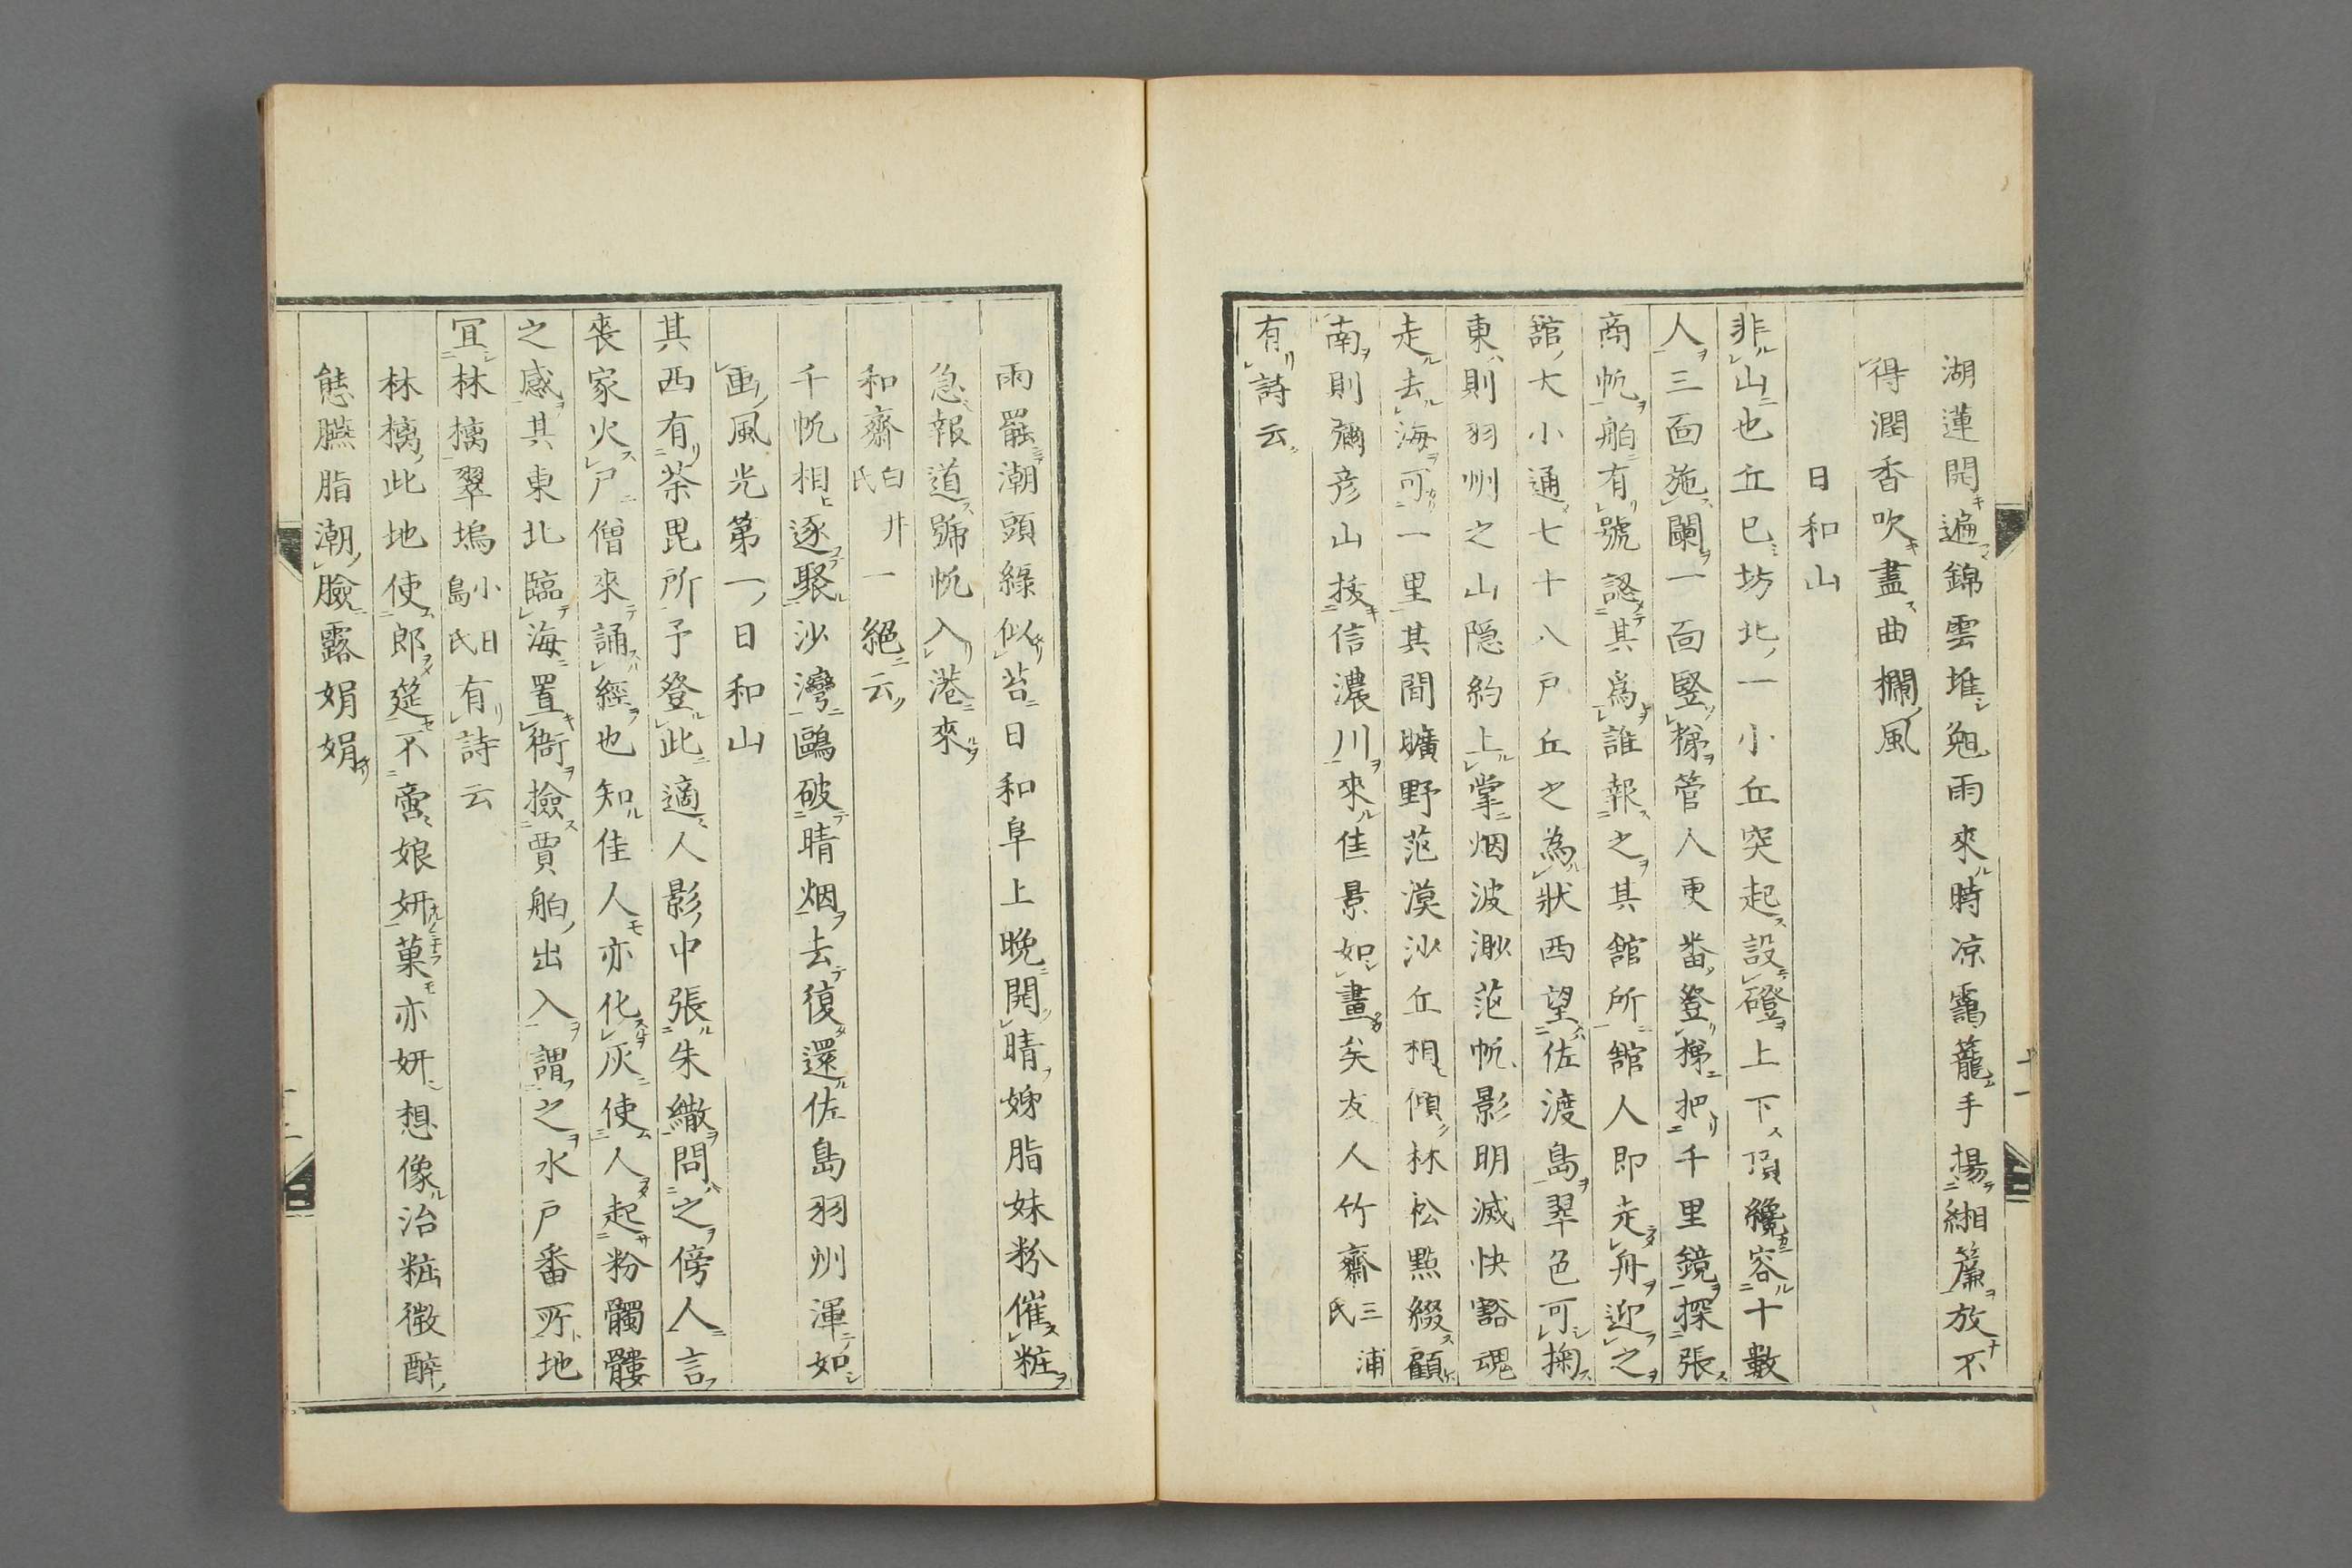 湖蓮開遍錦雲堆兔雨來時凉靄籠手揚緗簾放不
得潤香吹盡曲欄風
日和山
非山也丘巳坊北一小丘突起設磴上下頂纔容十數
人三面施闌一面竪梯管人更番登梯把千里鏡探張
商帆舶有號認其爲誰報之其舘所舘人即走舟迎之
舘大小通七十八戸丘之為狀西望佐渡島翠色可掬
東則羽州之山隠約上掌烟波渺茫帆影明滅快豁魂
走去海可一里其間曠野茫漠沙丘相傾林松㸃綴顧
南則彌彦山挨信濃川來佳景如畫矣友人竹齋三浦氏
有詩云
十一
雨罷潮頭綠似苔日和阜上晩開晴姊脂妹粉催粧
急報道號帆入港來
和齋白井氏一絕云
千帆相逐聚沙灣鷗破晴烟去復還佐島羽州渾如
画風光第一日和山
其西有荼毘所予登此適人影中張朱繖問之傍人言
喪家火尸僧來誦經也知佳人亦化灰使人起粉髑髏
之感其東北臨海置衙撿賈舶出入謂之水戸番所地
冝林檎翠塢小島日氏有詩云
林檎此地使郎筵不啻娘妍菓亦妍想像冶粧微醉
態臙脂潮臉露娟娟
十二